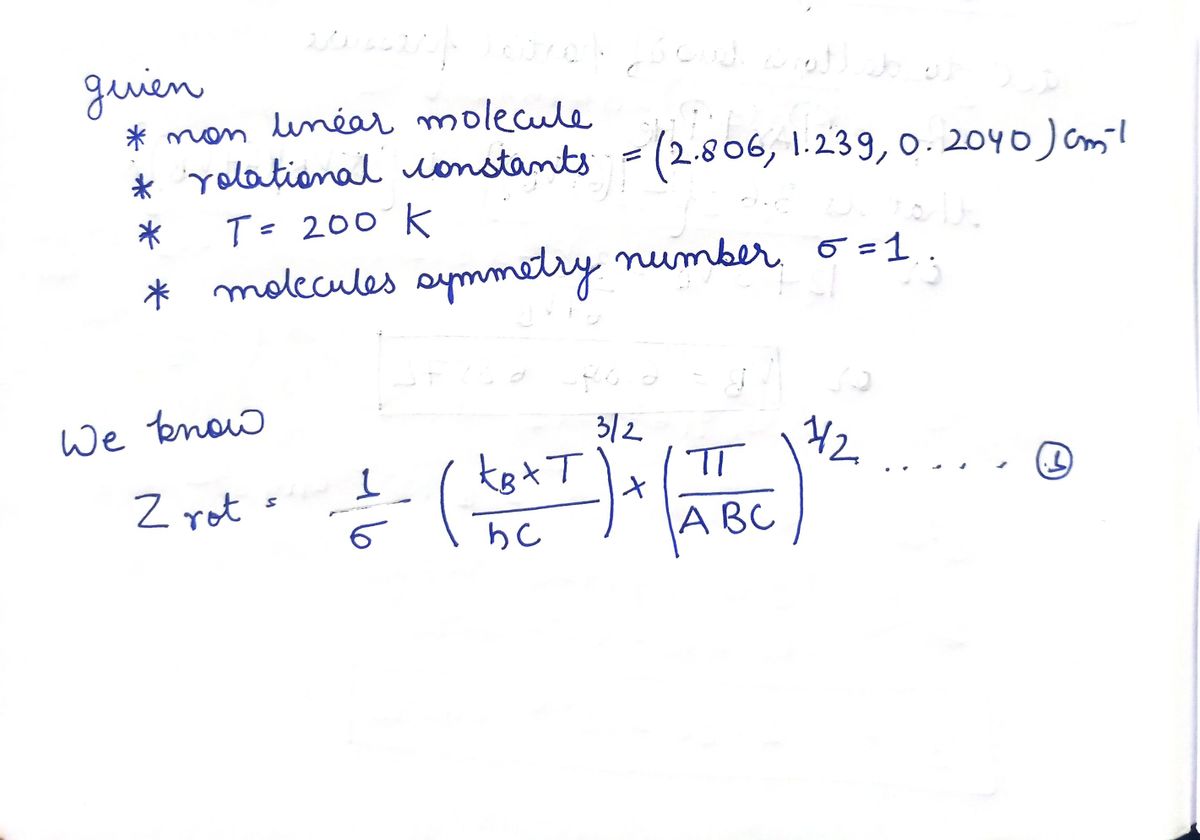 given
* non linear molecule
* rotational constants = (2.806, 1.239, 0.2040) cm⁻¹
* T = 200 K
* molecules symmetry number σ = 1.
We know
Z rot = 1/σ (k_B × T / hC)^3/2 × (π / ABC)^1/2 ..... ①